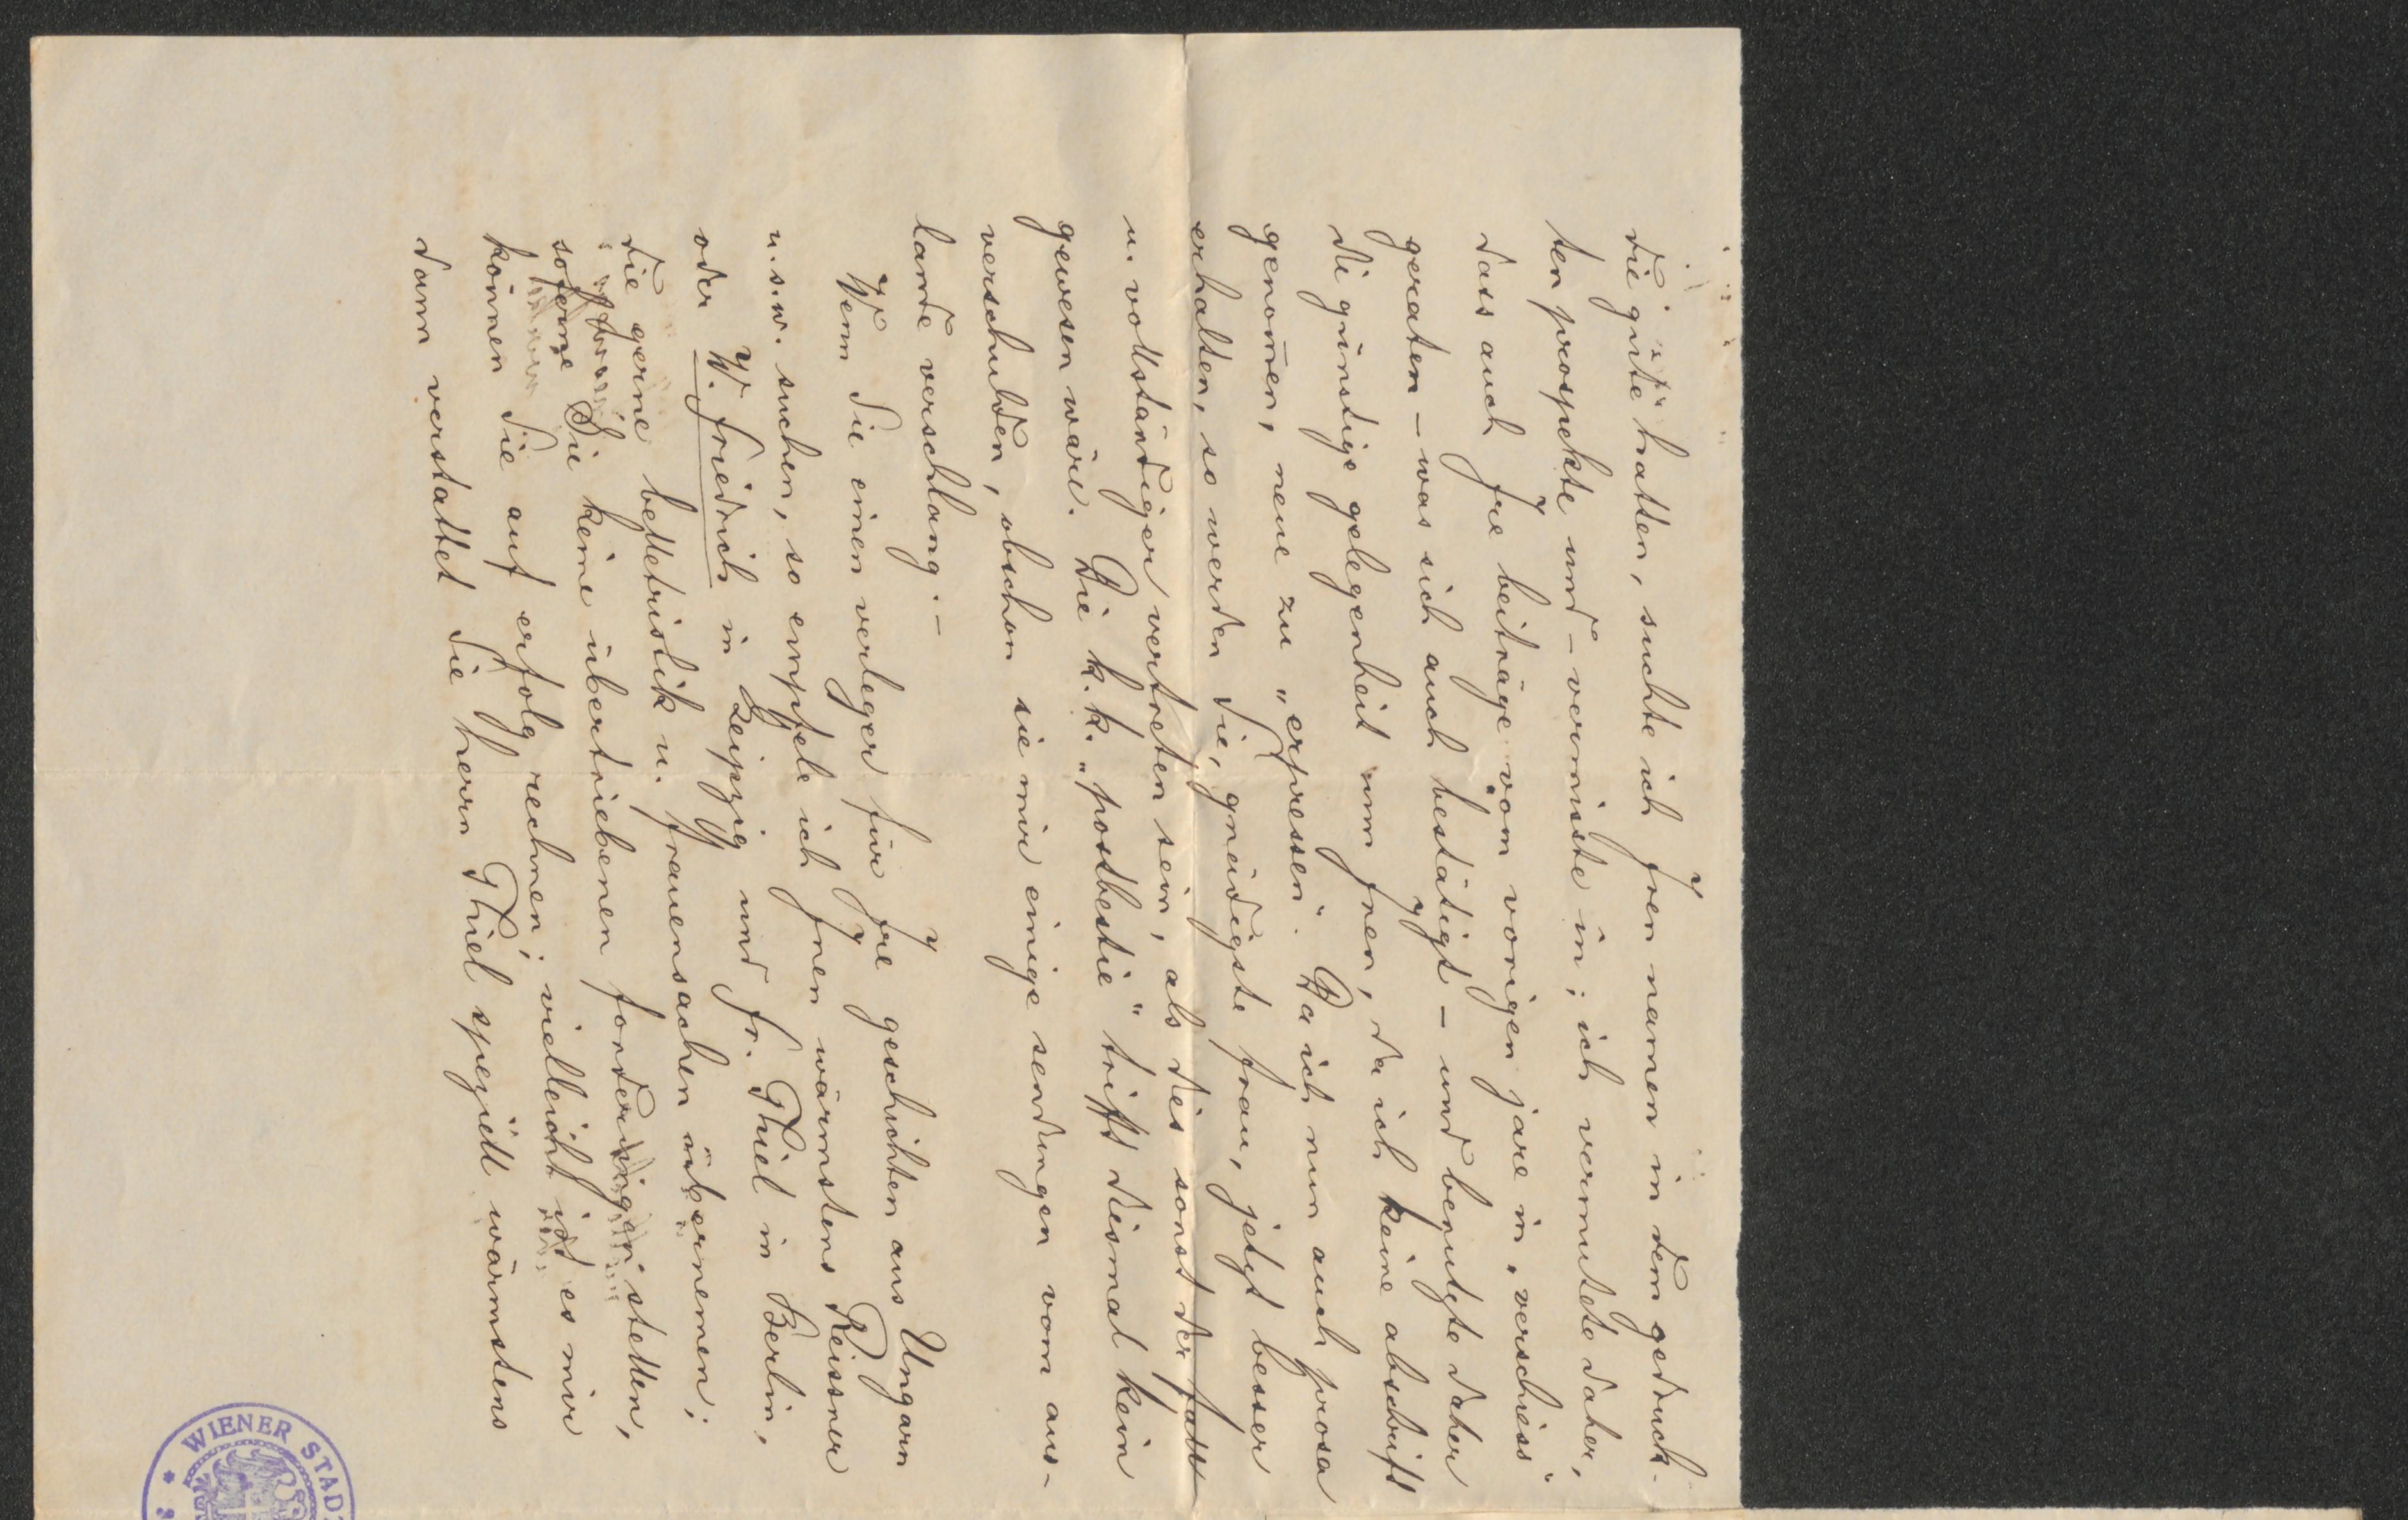 die güte hatten, suchte ich Iren namen in dem gedruck-
ten prospekte und – vermisste in; ich vermutete daher,
dass auch Ire beiträge vom vorigen jare in „verschleiss"
geraten – was sich auch bestätigt – und benutzte daher
die günstige gelegenheit um Inen, da ich keine abschrift
genom̄en, neue zu „erpressen". Da ich nun auch prosa
erhalten, so werden Sie, gnädigste frau, jetzt besser
u. vollständiger vertreten sein, als dies sonst der fall
gewesen wäre. Die k. k. „postbestie" trifft diesmal kein
verschulden, obschon sie mir einige sendungen vom aus-
lande verschlang. –
Wenn Sie einen verleger für Ire geschichten aus Ungarn
u. s. w. suchen, so empfele ich Inen wärmstens Reissner
oder W. Friedrich in Leipzig und Fr. Thiel in Berlin,
die gerne belletristik u. frauensachen übernemen;
soferne Sie keine übertriebenen forderungen stellen,
können Sie auf erfolg rechnen; vielleicht ist es mir
dann verstattet Sie herrn Thiel speziell wärmstens
WIENER STADT